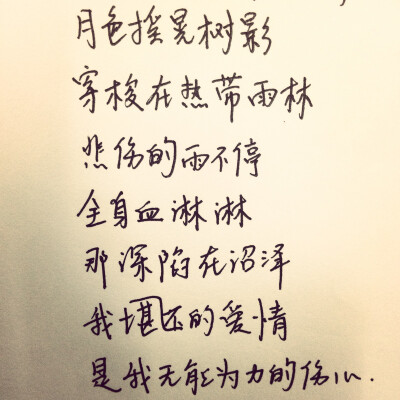 月色摇晃树影
穿梭在热带雨林
悲伤的雨不停
全身血淋淋
那深陷在沼泽
我堪不的爱情
是我无能为力的伤心.